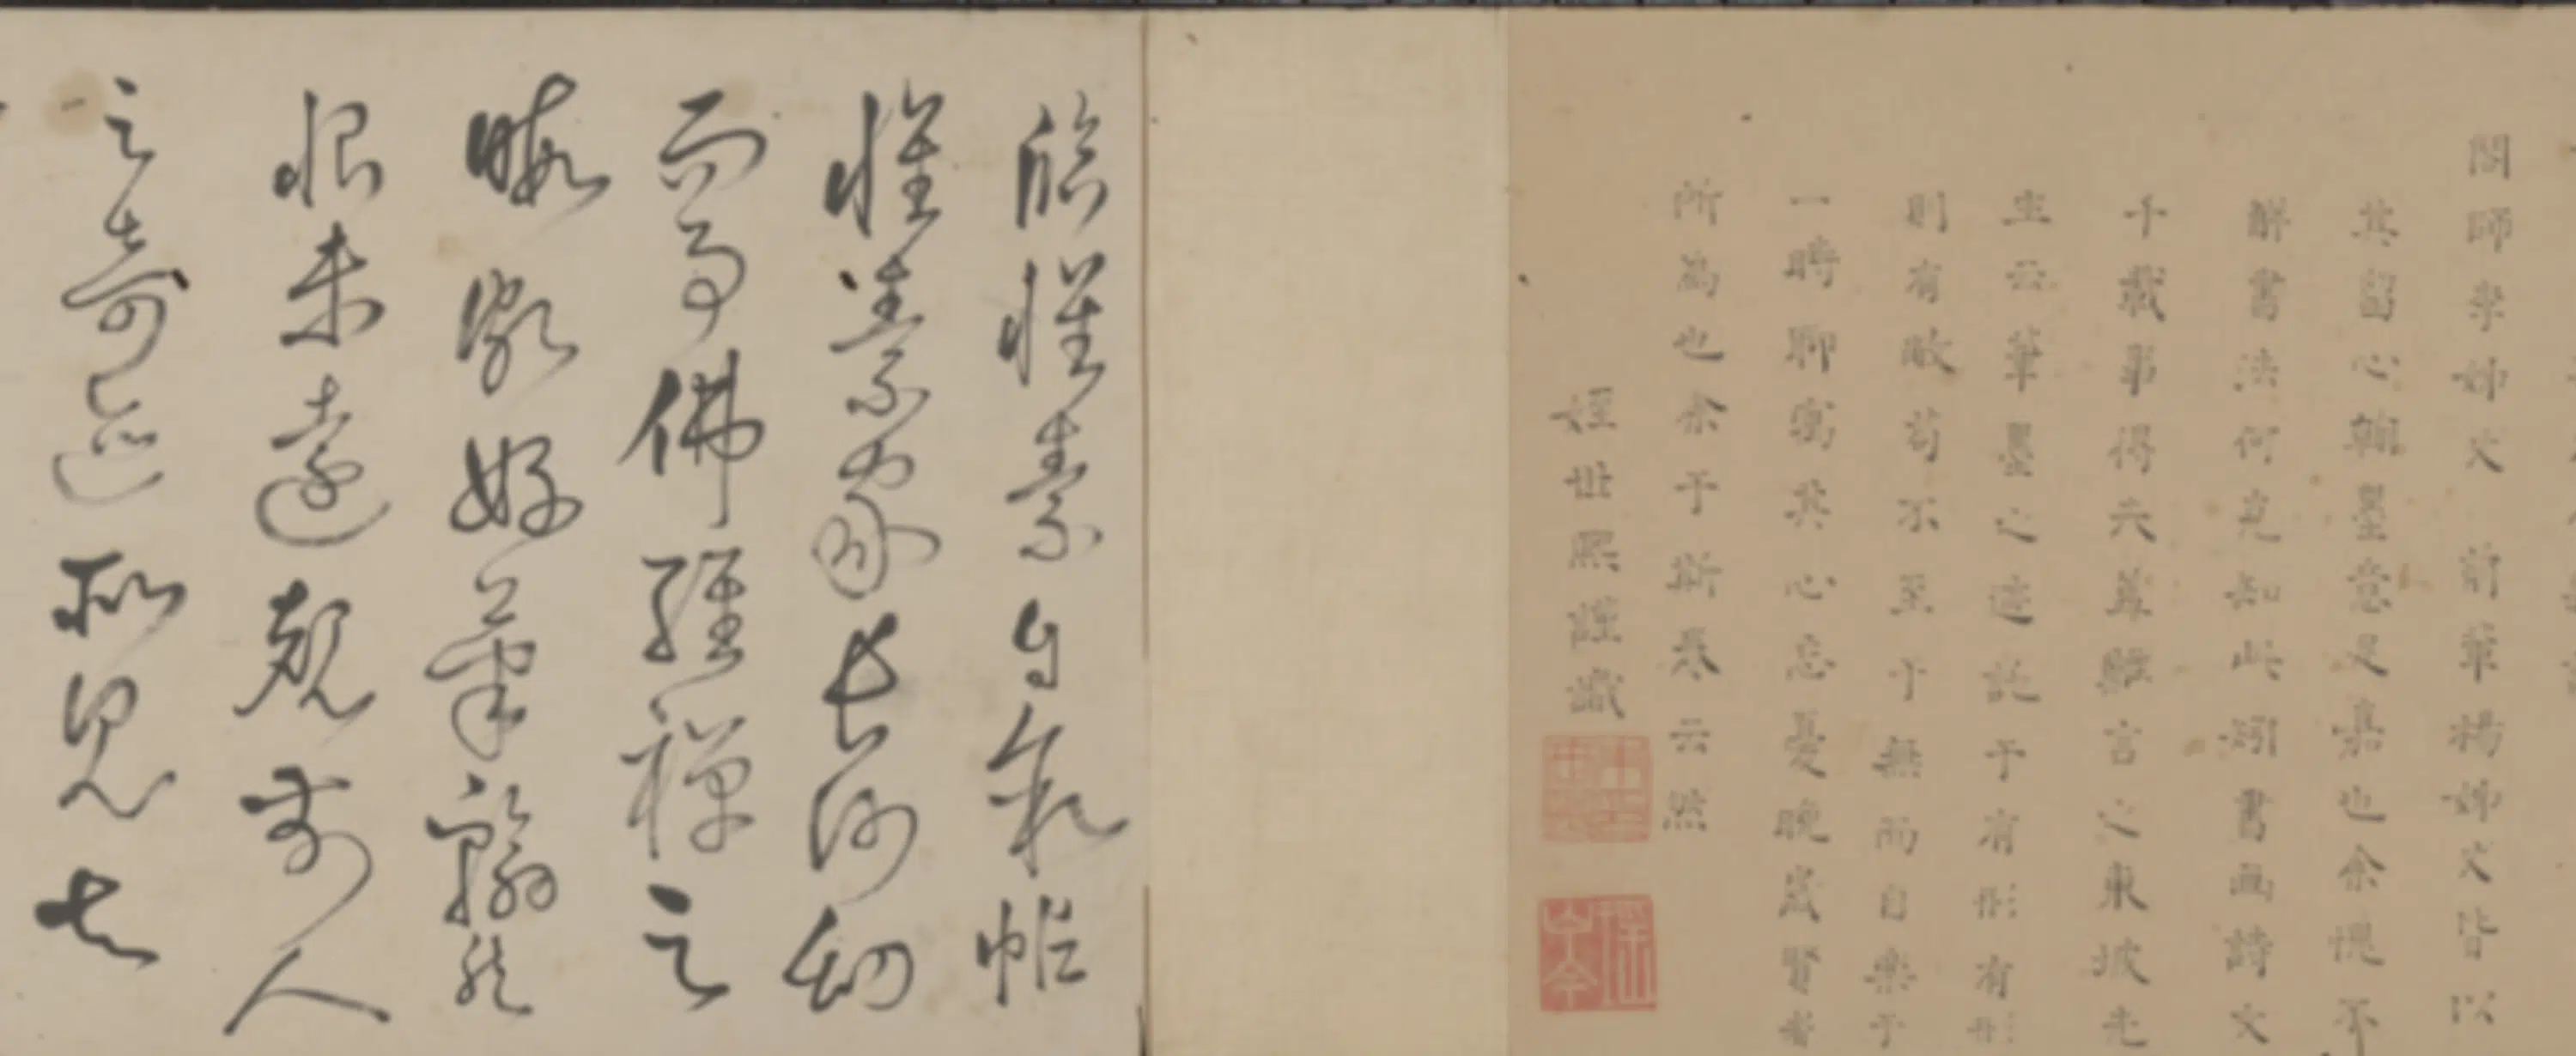 閣師李姊丈 前輩楊姊丈皆以
其留心翰墨意足嘉也余愧不
解書法何克知此 書画詩文
千載 得失 難言之東坡先
生云筆墨之迹託于有形有形
則有敝苟不至于無而自樂于
一時聊寓其心忘憂晚歲賢者
所為也余于斯卷云然
姪世熙謹識
臨懷素自叙帖
懷素家長沙幼
而事佛經禪之
暇頗好筆翰然
恨未遠覩前人
之奇迹所見甚